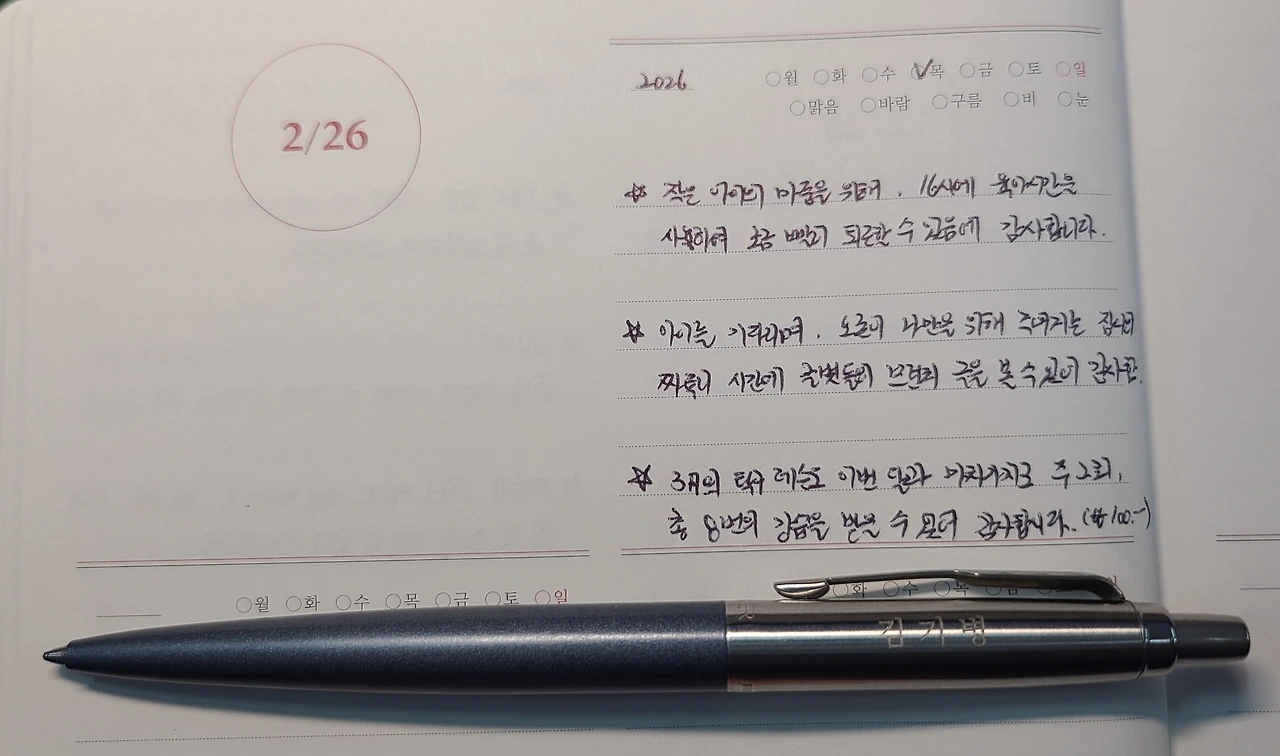 2/26
2026
월 화 수 목 금 토 일
맑음 바람 구름 비 눈
☆ 작은 아이의 마중을 위해, 16시에 육아시간을
사용하여 조금 빨리 퇴근할 수 있음에 감사합니다.
☆ 아이를 기다리며, 오롯이 나만을 위해 주어지는
짜투리 시간에 글을 쓸 수 있어 감사한.
☆ 3월의 탁구 레슨도 이번 달과 마찬가지로 주 2회,
총 8번의 강습을 받을 수 있어 감사합니다. (₩100.-)
월 화 수 목 금 토 일
화 수 목 금 일
김기병